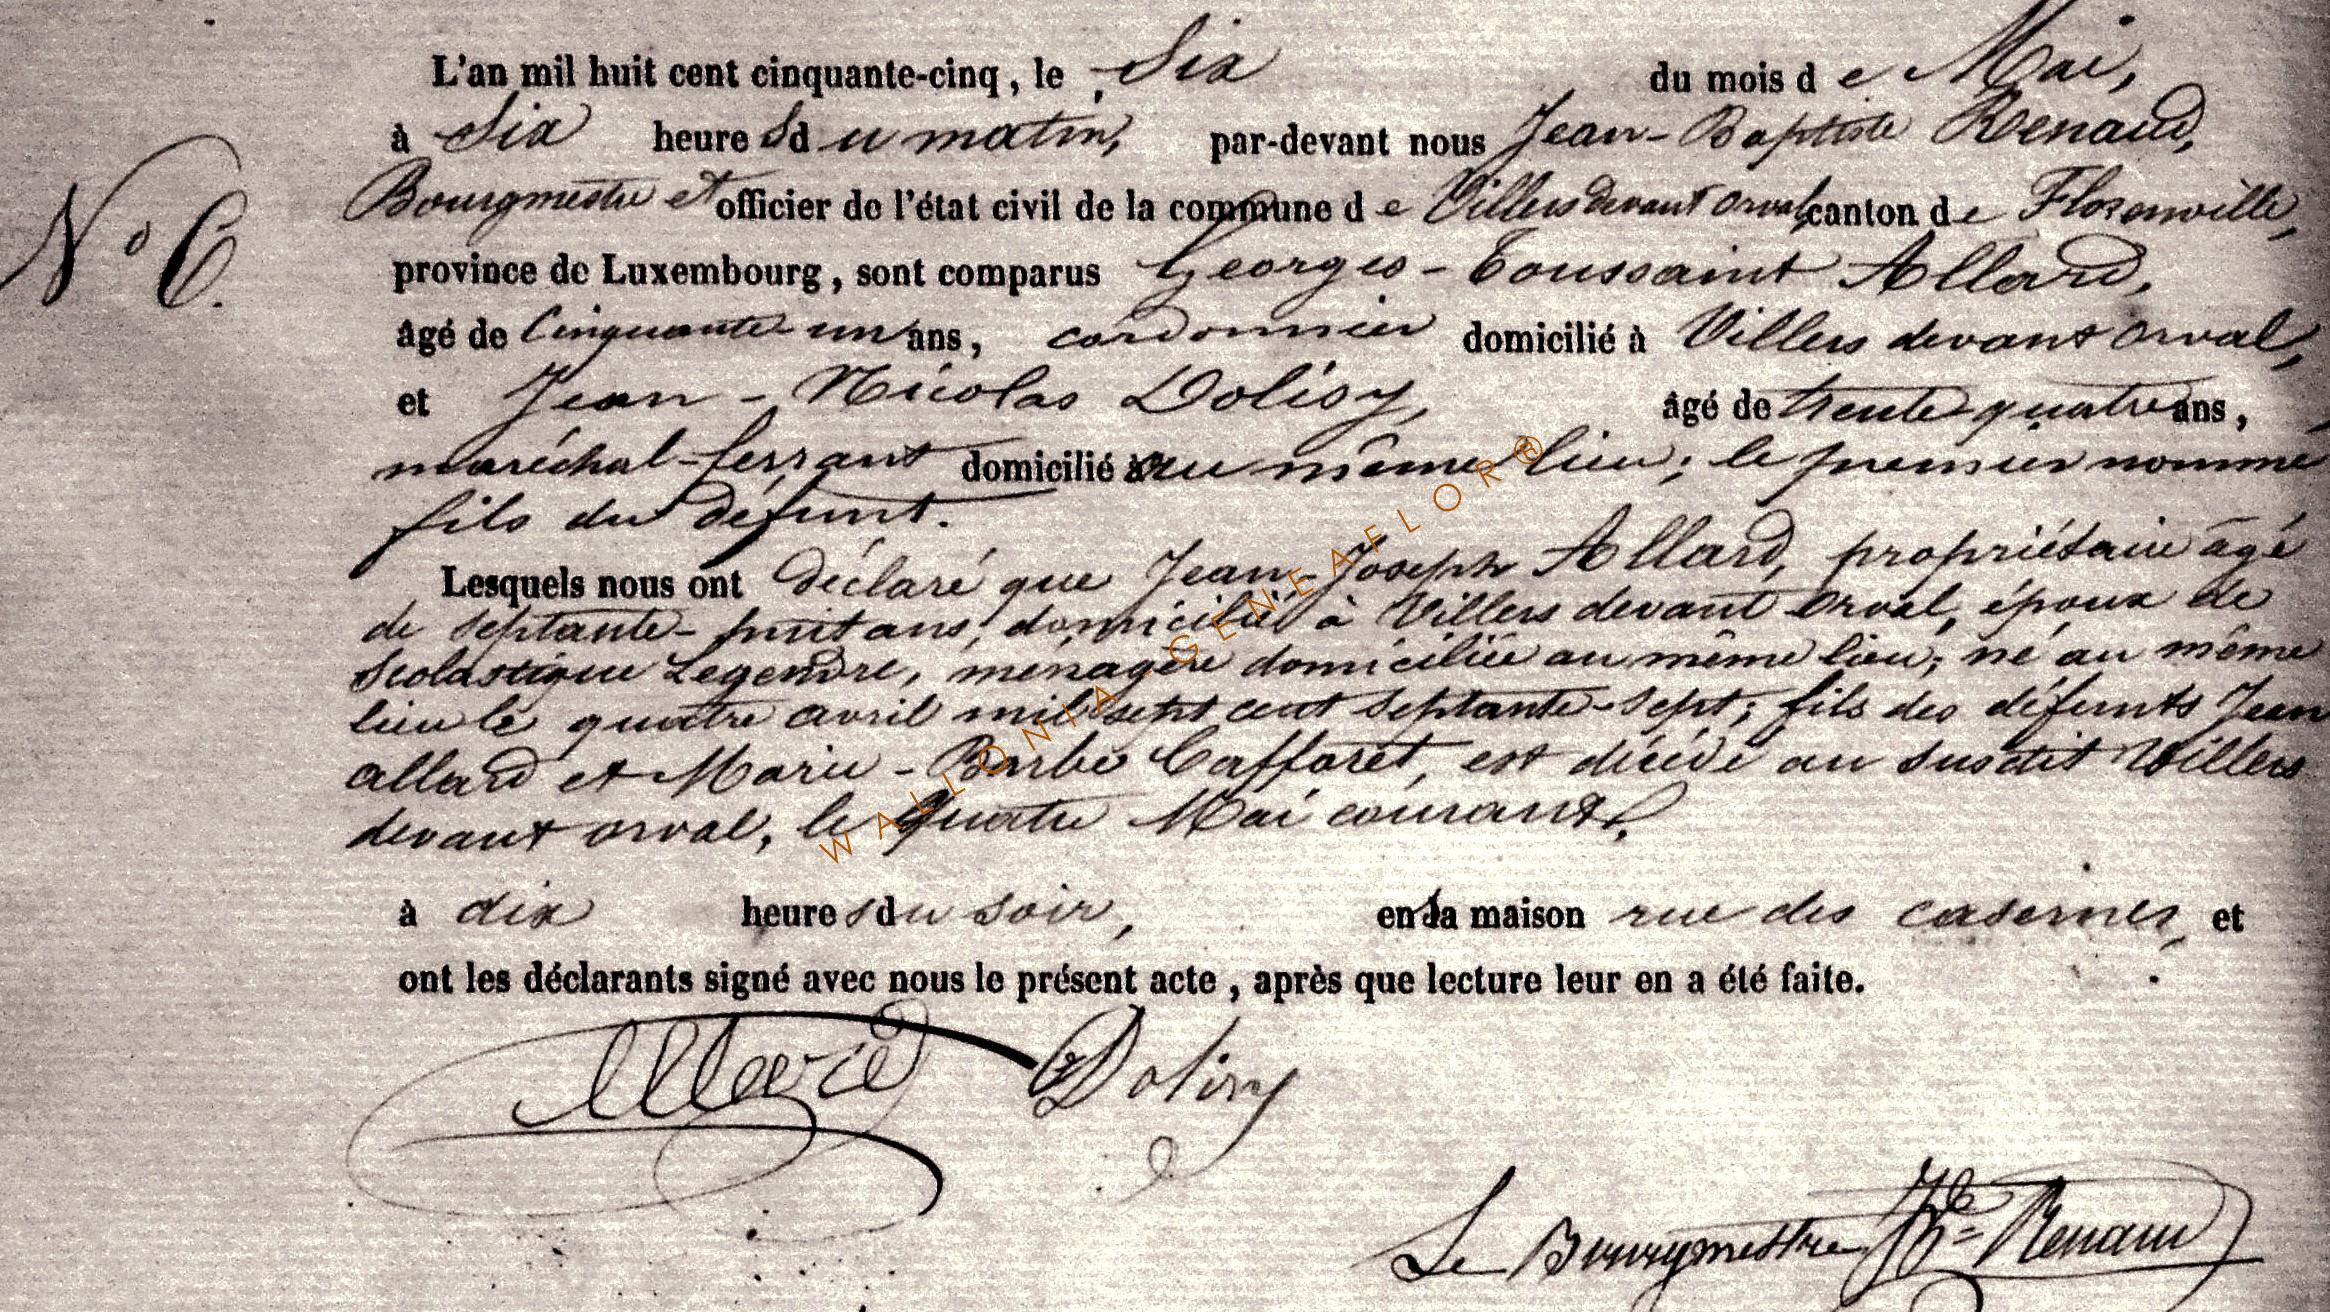 L'an mil huit cent cinquante-cinq, le Six du mois de Mai,
à Six heures du matin, par-devant nous Jean-Baptiste Renaud,
N° 6.
Bourgmestre et officier de l'état civil de la commune de Villers devant orval, canton de Florenville,
province de Luxembourg, sont comparus Georges-Toussaint Allard,
âgé de Cinquante-un ans, cordonnier domicilié à Villers devant orval,
et Jean-Nicolas Dolisy, âgé de trente-quatre ans,
maréchal-ferrant domicilié au même lieu; le premier nommé
fils du défunt.
Lesquels nous ont déclaré que Jean-Joseph Allard, propriétaire âgé
de septante-huit ans, domicilié à Villers devant Orval, époux de
Scolastique Legendre, ménagère domiciliée au même lieu; né au même
lieu le quatre avril mil sept cent septante-sept; fils des défunts Jean
allard et Marie-Barbe Caffaret, est décédé au susdit Villers
devant orval, le quatre Mai courant,
à dix heures du soir, en sa maison rue des casernes, et
ont les déclarants signé avec nous le présent acte, après que lecture leur en a été faite.
Allard Dolisy
Le Bourgmestre JBte Renaud
WALLONIA GENEAFLOR®